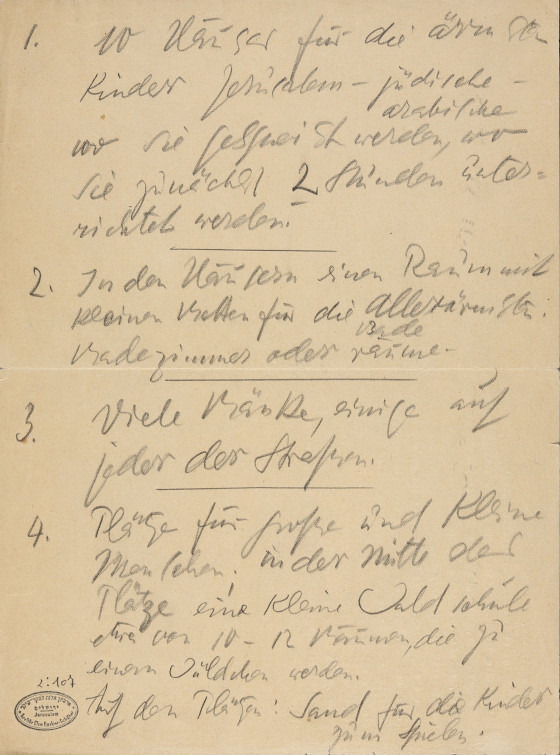 1. 10 Häuser für die ärmsten
Kinder Jerusalem – jüdische –
arabische
wo sie gespeist werden, wo
sie zunächst 2 Stunden unter=
richtet werden.
2. In den Häusern einen Raum mit
kleinen Betten für die Allerärmsten.
Bade
Badezimmer oder räume.
3. Viele Bänke, einige auf
jeder der Straßen.
4. Plätze für große und kleine
Menschen. in der Mitte der
Plätze eine kleine Waldschule
etwa von 10 – 12 Bäumen, die zu
einem Wäldchen werden.
Auf den Plätzen: Sand für die Kinder
zum Spielen.
2:107
Jerusalem